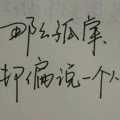 那么孤寞
却偏说一个人